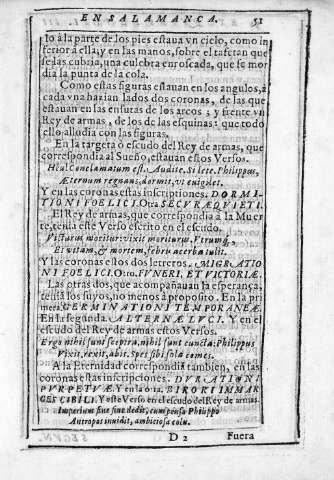 EN SALAMANCA. 51
lo à la parte de los pies estaua vn cielo, como in
ferior à ella, y en las manos, sobre el tafetan que
se las cubria, vna culebra enroscada, que se mor
dia la punta de la cola.
Como estas figuras estauan en los angulos, à
cada vna hazian lados dos coronas, de las que
estauan en las enjutas de los arcos; y frente vn
Rey de armas, de los de las esquinas: que todo
ello alludia con las figuras.
En la targeta ò escudo del Rey de armas, que
correspondia al Sueño, estauan estos Versos.
Heu! Conclamatum est. Audite, Silete. Philippus,
Æternum regnans, dormit, vt euigilet.
Y en las coronas estas inscripciones. DORMI-
TIONI FOELICI. Otra SECVRÆ QVIETI.
El Rey de armas, que correspondia à la Muer
te, tenia este Verso escrito en el escudo.
Victurus moritur: vixit moriturus. Vtrumq;
Et vitam, & mortem, febris acerba tulit.
Y las coronas estos dos letreros. MIGRATIO
NI FOELICI. Otro. FVNERI, ET VICTORIÆ.
Las otras dos, que acompañauan la esperança,
tenia los suyos, no menos à proposito. En la pri
mera. GERMINATIONI TEMPORANEÆ.
En la segunda. ALTERNÆ LVCI. Y en el
escudo del Rey de armas estos Versos.
Ergo nihil sunt sceptra, nihil sunt cuncta: Philippus
Vixit, rexit, abit. Spes sibi sola comes.
A la Eternidad correspondia tambien, en las
coronas estas inscripciones. DVRATIONI
PVRPETVÆ. Y en la otra, BIRORI IMMAR
GESCIBILI. Y este Verso en el escudo del Rey de armas.
Imperium sine fine dedit, cum pensa Philippo
Antropas inuidit, ambiciosa colu.
D 2 Fuera